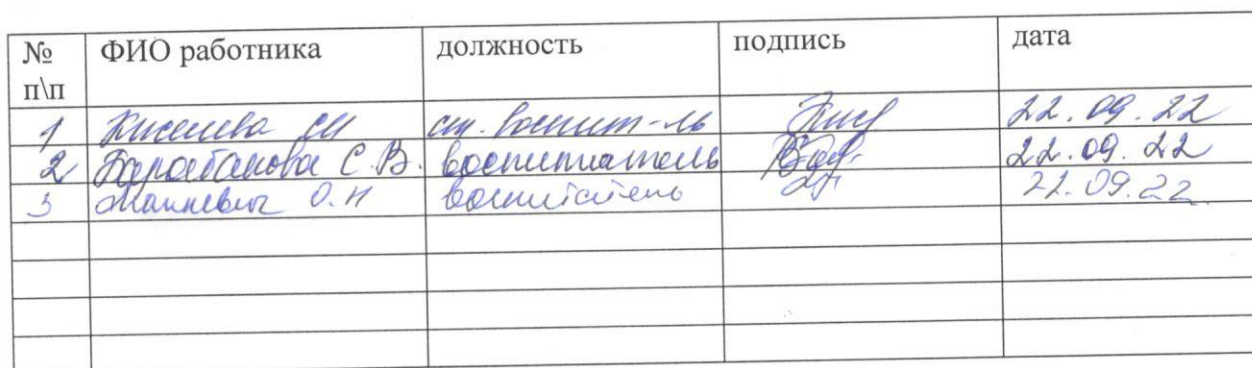 № п\п ФИО работника должность подпись дата
1 Киселева СИ ст. воспит-ль 22.09.22
2 Барабанова С.В. воспитатель 22.09.22
3 О.Н воспитатель 22.09.22